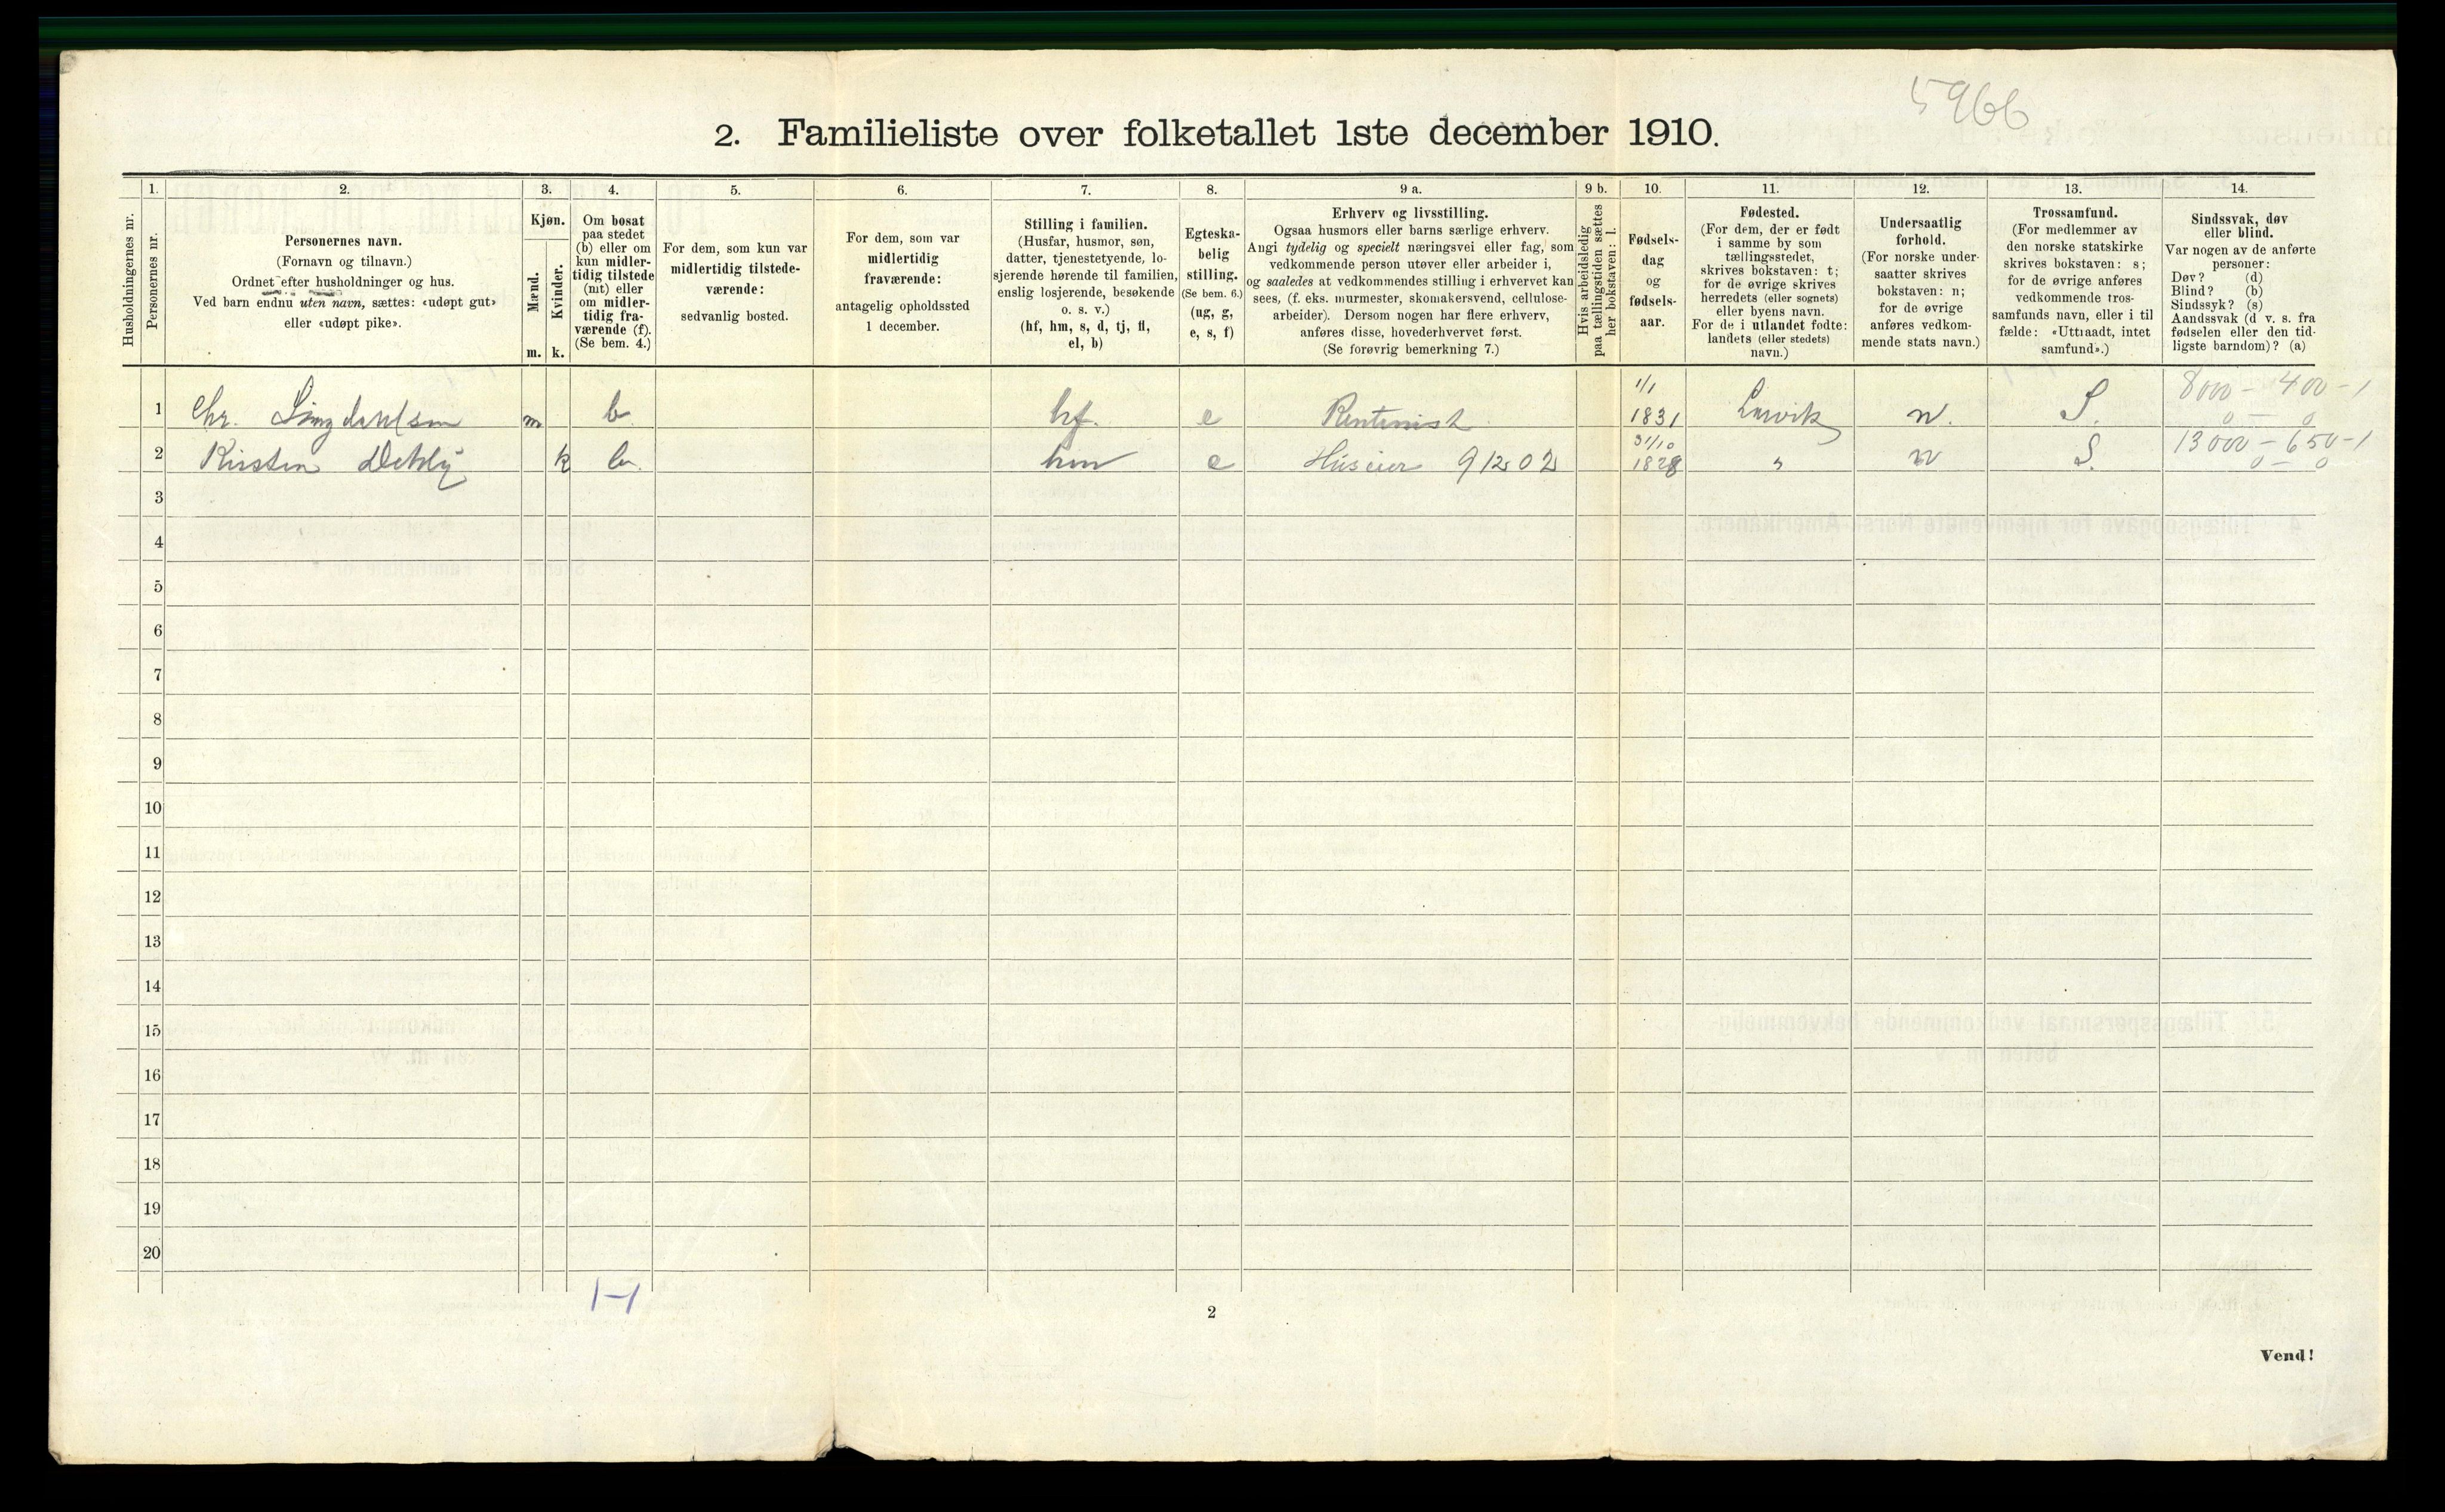 5966
2. Familieliste over folketallet 1ste december 1910.
Husholdningernes nr.
1.
Personernes nr.
2.
Personernes navn.
(Fornavn og tilnavn.)
Ordnet efter husholdninger og hus.
Ved barn endnu uten navn, sættes: «udøpt gut»
eller «udøpt pike».
3.
Kjøn.
Mænd.
Kvinder.
m. k.
4.
Om bosat
paa stedet
(b) eller om
kun midler-
tidig tilstede
(mt) eller
om midler-
tidig fra-
værende (f).
(Se bem. 4.)
5.
For dem, som kun var
midlertidig tilstede-
værende:
sedvanlig bosted.
6.
For dem, som var
midlertidig
fraværende:
antagelig opholdssted
1 december.
7.
Stilling i familien.
(Husfar, husmor, søn,
datter, tjenestetyende, lo-
sjerende hørende til familien,
enslig losjerende, besøkende
o. s. v.)
(hf, hm, s, d, tj, fl,
el, b)
8.
Egteska-
belig
stilling.
(Se bem. 6.)
(ug, g,
e, s, f)
9 a.
Erhverv og livsstilling.
Ogsaa husmors eller barns særlige erhverv.
Angi tydelig og specielt næringsvei eller fag, som
vedkommende person utøver eller arbeider i,
og saaledes at vedkommendes stilling i erhvervet kan
sees, (f. eks. murmester, skomakersvend, cellulose-
arbeider). Dersom nogen har flere erhverv,
anføres disse, hovederhvervet først.
(Se forøvrig bemerkning 7.)
9 b.
Hvis arbeidsledig
paa tællingstiden sættes
her bokstaven: l.
10.
Fødsels-
dag
og
fødsels-
aar.
11.
Fødested.
(For dem, der er født
i samme by som
tællingsstedet,
skrives bokstaven: t;
for de øvrige skrives
herredets (eller sognets)
eller byens navn.
For de i utlandet fødte:
landets (eller stedets)
navn.)
12.
Undersaatlig
forhold.
(For norske under-
saatter skrives
bokstaven: n;
for de øvrige
anføres vedkom-
mende stats navn.)
13.
Trossamfund.
(For medlemmer av
den norske statskirke
skrives bokstaven: s;
for de øvrige anføres
vedkommende tros-
samfunds navn, eller i til
fælde: «Uttraadt, intet
samfund».)
14.
Sindssvak, døv
eller blind.
Var nogen av de anførte
personer:
Døv? (d)
Blind? (b)
Sindssyk? (s)
Aandssvak (d v. s. fra
fødselen eller den tid-
ligste barndom)? (a)
1 Chr. m b. hf. e Rentenist 1/1 1831 Larvik n. S. 8000 - 400 - 1
0 — 0
2 Kirsten k b. hm e Huseier 9 12 02 31/10 1828 " n S. 13000 - 650 - 1
0 — 0
3
4
5
6
7
8
9
10
11
12
13
14
15
16
17
18
19
20
1-1
2
Vend!